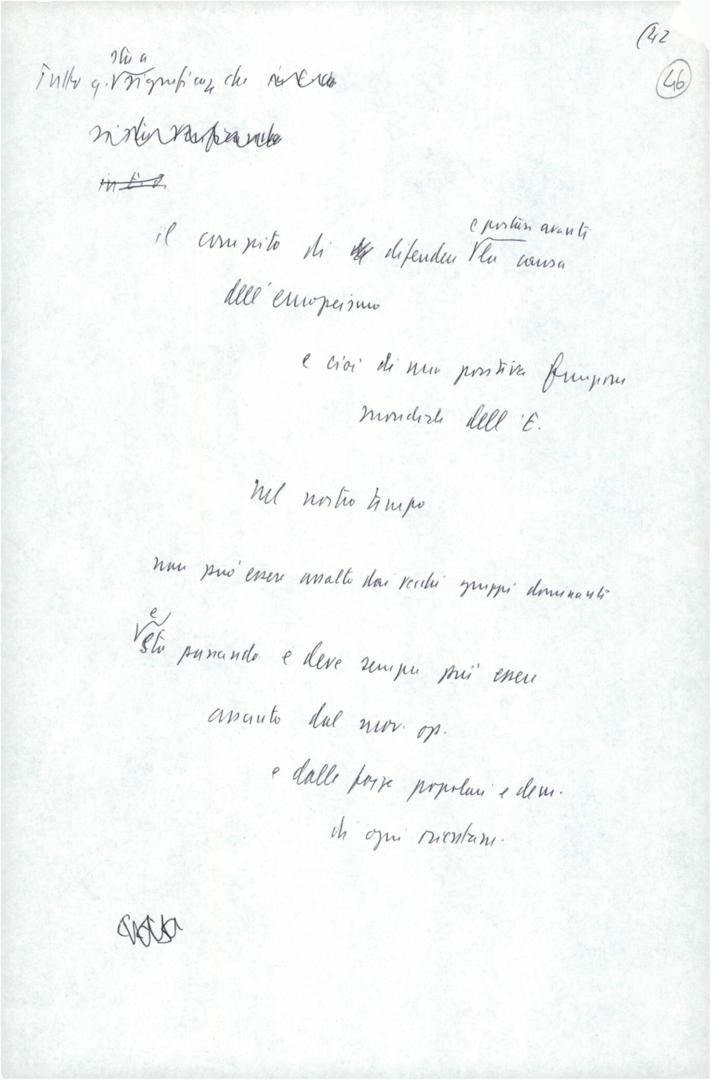 (42
46
sta a
Tutto q. significare che
il compito di difendere la causa
e portare avanti
dell'europeismo
e cioè di una positiva funzione
mondiale dell'E.
Nel nostro tempo
non può essere assolto dai vecchi gruppi dominanti
e
sta passando e deve sempre più essere
assunto dal mov. op.
e dalle forze popolari e dem.
di ogni orientam.